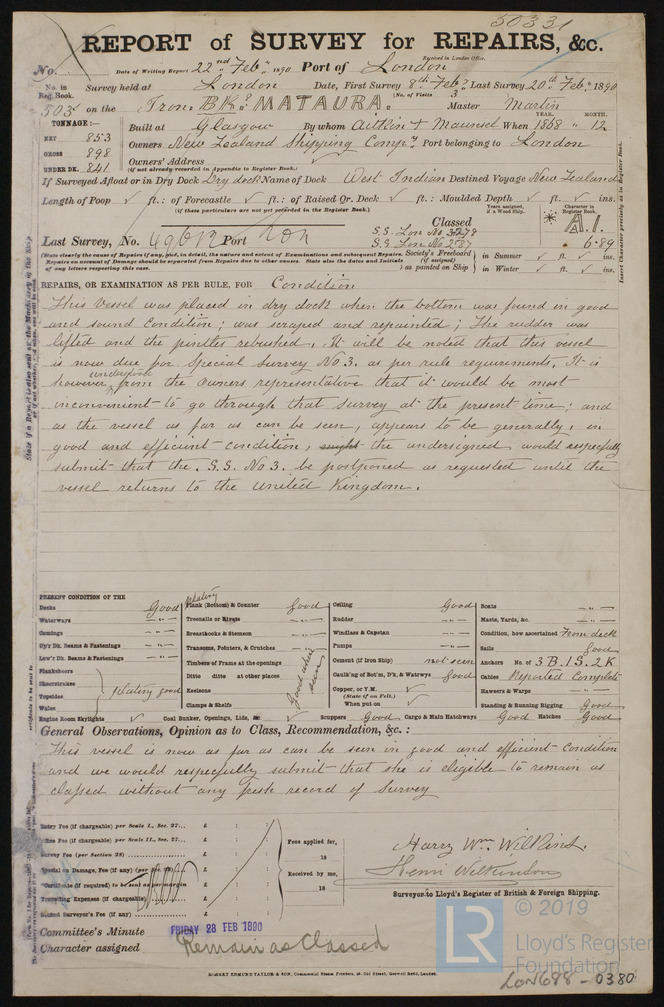 50331
REPORT of SURVEY for REPAIRS, &c.
Received in London Office.
No. Date of Writing Report 22nd Feby 1890 Port of London
No. in Reg. Book. Survey held at London Date, First Survey 8th Feby Last Survey 20th Feby 1890
(No. of Visits 3)
503 on the Iron BK. MATAURA. Master Martin
TONNAGE:—
NET 853
GROSS 898
UNDER DK. 841
YEAR. MONTH.
Built at Glasgow By whom Aitkin & Maunsel When 1868 12
Owners New Zealand Shipping Compy Port belonging to London
Owners' Address
(if not already recorded in Appendix to Register Book.)
If Surveyed Afloat or in Dry Dock Dry dock Name of Dock West Indian Destined Voyage New Zealand
Length of Poop ✓ ft.: of Forecastle ✓ ft.: of Raised Qr. Deck ✓ ft.: Moulded Depth ✓ ft. ✓ ins.
(if these particulars are not yet recorded in the Register Book.)
Years assigned, if a Wood Ship.
Character in Register Book.
Classed
A.1.
6.89
S.S. Lon No 2.87
Last Survey, No. Port Lon
(State clearly the cause of Repairs if any, and, in detail, the nature and extent of Examinations and subsequent Repairs.
Repairs on account of Damage should be separated from Repairs due to other causes. State also the dates and Initials
of any letters respecting this case.
Society's Freeboard (if assigned) as painted on Ship
in Summer ✓ ft. ✓ ins.
in Winter ✓ ft. ✓ ins.
Insert Character precisely as in Register Book.
REPAIRS, OR EXAMINATION AS PER RULE, FOR Condition
This vessel was placed in dry dock when the bottom was found in good
and sound condition; was scraped and repainted; The rudder was
lifted and the pintles rebushed. It will be noted that this vessel
is now due for Special Survey No 3. as per rule requirements. It is
however, understood from the owners representative that it would be most
inconvenient to go through that survey at the present time; and
as the vessel as far as can be seen, appears to be generally, in
good and efficient condition, the undersigned would respectfully
submit that the S.S. No 3. be postponed as requested until the
vessel returns to the United Kingdom.
PRESENT CONDITION OF THE
Decks Good
Waterways —"—
Comings —"—
Up'r Dk. Beams & Fastenings —"—
Low'r Dk. Beams & Fastenings —"—
Planksheers
Sheerstrakes
Topsides
Wales
plating good
Engine Room Skylights ✓
plating
Plank (Bottom) & Counter Good
Treenails or Rivets
Breasthooks & Stemson
Transoms, Pointers, & Crutches
Timbers of Frame at the openings
Ditto ditto at other places
Keelsons
Clamps & Shelfs
Good where seen
Coal Bunker, Openings, Lids, &c. ✓
Ceiling Good
Rudder —"—
Windlass & Capstan —"—
Pumps —"—
Cement (if Iron Ship) not seen
Caulk'ng of Bot'm, D'k, & Waterways Good
Copper, or Y.M. ✓
(State if on Felt.)
When put on ✓
Scuppers Good Cargo & Main Hatchways Good Hatches Good
Boats —"—
Masts, Yards, &c. —"—
Condition, how ascertained From deck
Sails Good
Anchors No. of 3 B. 1 S. 2 K
Cables Reported Complete
Hawsers & Warps —"—
Standing & Running Rigging Good
General Observations, Opinion as to Class, Recommendation, &c.:
This vessel is now as far as can be seen in good and efficient condition
and we would respectfully submit that she is eligible to remain as
classed without any fresh record of Survey
Entry Fee (if chargeable) per Scale I., Sec. 27... £ : :
Fee (if chargeable) per Scale II., Sec. 27... £ : :
Survey Fee (per Section 28) £ : :
Special or Damage, Fee (if any) (per £ : :
Certificate (if required) to be sent as per margin
Travelling Expenses (if chargeable) £ : :
Second Surveyor's Fee (if any) £ : :
Fees applied for,
18
Received by me,
18
Harry Wm. Wilkins.
Henri Wilkinson
Surveyor to Lloyd's Register of British & Foreign Shipping.
Committee's Minute FRIDAY 28 FEB 1890
Character assigned Remain as Classed
LR
© 2019
Lloyd's Register
Foundation
LON688-0380
ROBERT EDMUND TAYLOR & SON, Commercial Steam Printers, 19, Old Street, Goswell Road, London.